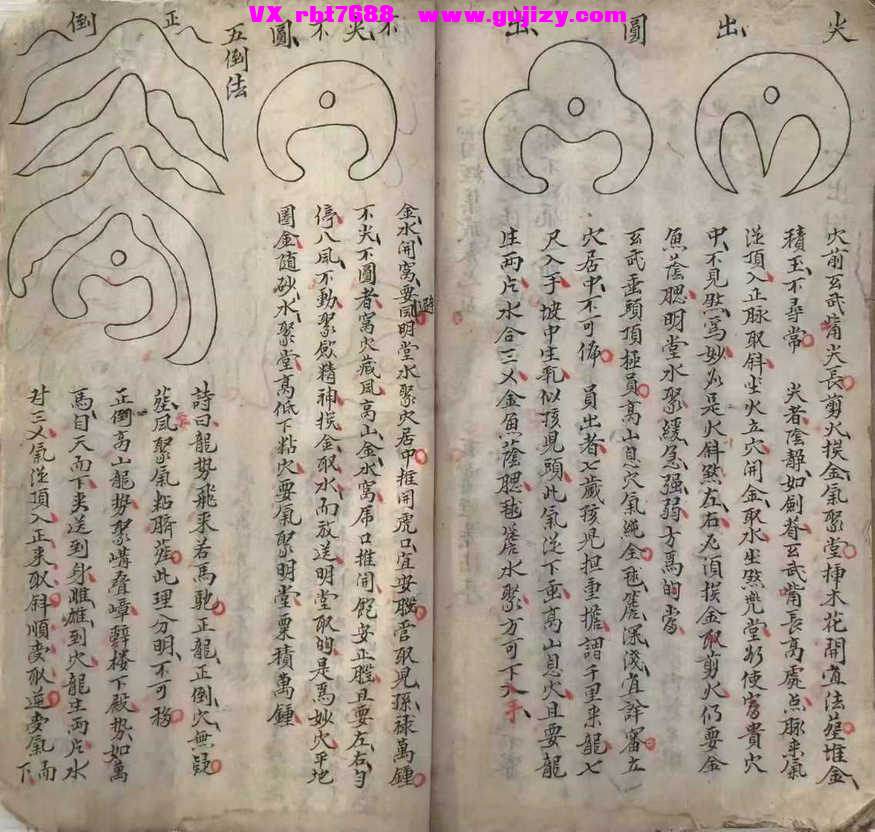 VX rbt7688 www.gujizy.com
尖出
圓出
穴前玄武觜尖長剪火摸金氣聚堂揷木花開宜法葬堆金
積玉不尋常 尖者陰静如劍脊玄武觜長高處点脉来氣
從頂入正脉取斜坐火立穴開金取水坐煞兜堂斜使富貴穴
中不見煞爲妙必是火斜煞左右尼頂摸金取剪火仍要金
魚蔭腮明堂水聚緩急强弱方爲的當
玄武垂頭頂極員高山息穴氣純金毬簷深淺宜詳審立
穴居中不可偏 員出者七歲孩兒担重擔謂千里来龍七
尺入手坡中生乳似孩兒頭此氣從下垂高山息穴且要龍
生兩片水合三乂金魚蔭腮毬簷水聚方可下入手
不尖不圓
金水開窩要圓明堂水聚穴居中推開虎口宜安股管取児孫禄萬鍾
不尖不圓者窩穴藏風高山金水窩虎口推開貌安正股且要左右勻
停八風不動聚歛精神摸金取水而放送明堂取的是爲妙穴平地
圓金随砂水聚堂高低下粘穴要氣聚明堂粟積萬鍾
五倒法
正倒
詩曰龍勢飛来若馬馳正龍正倒穴無疑
藏風聚氣粘臍葬此理分明不可移
正倒高山龍勢聚嶂叠嶂辭楼下殿勢如萬
馬自天而下夹送到身雌雄到穴龍生兩片水
对三乂氣從頂入正来取斜順受取逆受氣而下